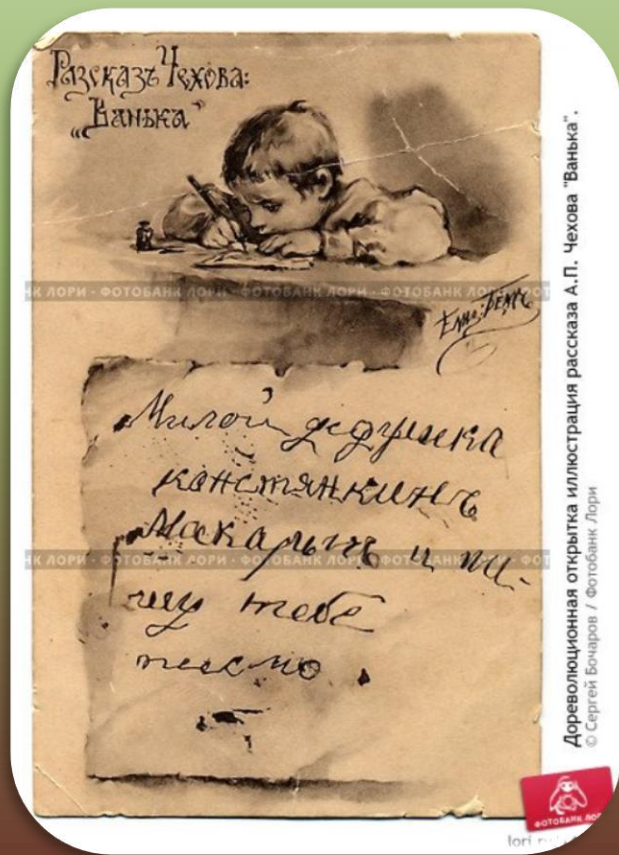 Разсказъ Чехова:
„Ванька“
НК ЛОРИ · ФОТОБАНК ЛОРИ · ФОТОБАНК ЛОРИ · ФОТОБАНК ЛОРИ · ФОТ
Елис: Бёмъ
Милой дедушка
констянкинъ
Макарычъ и пи-
НК ЛОРИ · ФОТОБАНК ЛОРИ · ФОТ
шу тебе
писмо.
Дореволюционная открытка иллюстрация рассказа А.П. Чехова "Ванька".
© Сергей Бочаров / Фотобанк Лори
ФОТОБАНК ЛОРИ